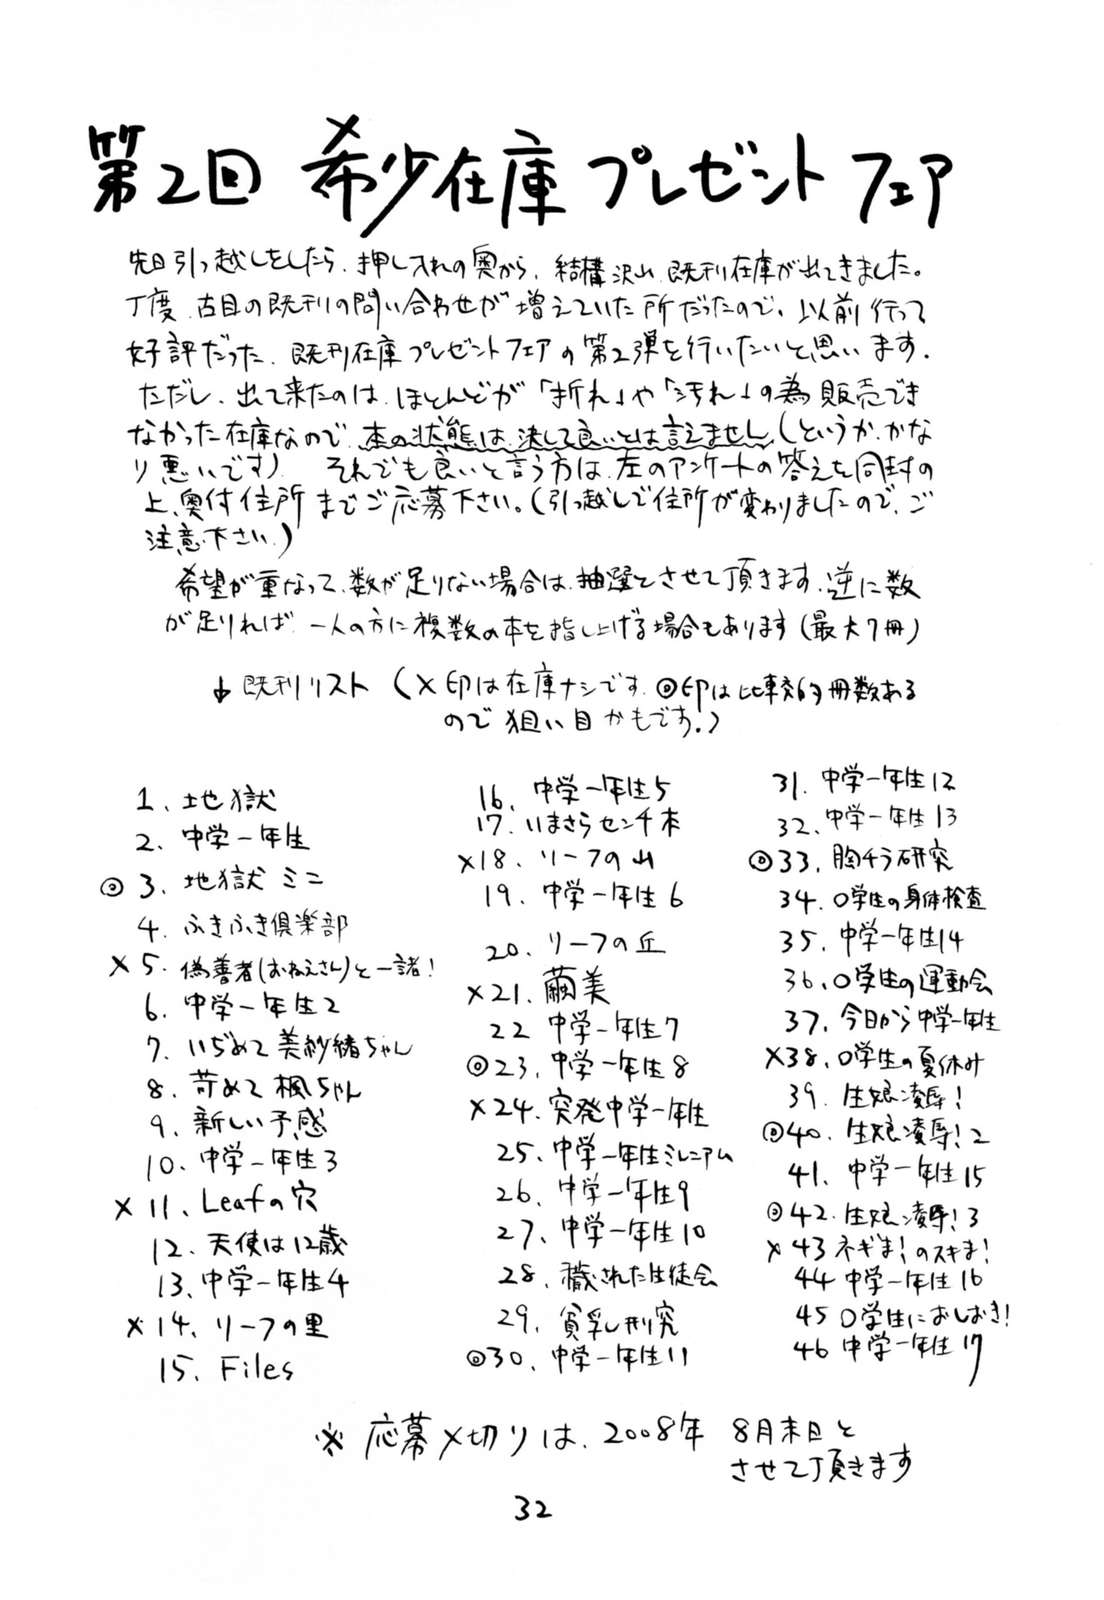 第2回 希少在庫プレゼントフェア
先日引っ越しをしたら、押し入れの奥から、結構沢山、既刊在庫が出てきました。
丁度、古目の既刊の問い合わせが増えていた所だったので、以前行って
好評だった、既刊在庫プレゼントフェアの第2弾を行いたいと思います。
ただし、出て来たのは、ほとんどが「折れ」や「汚れ」の為販売でき
なかった在庫なので、本の状態は、決して良いとは言えません(というか、かな
り悪いです)。 それでも良いと言う方は、左のアンケートの答えを同封の
上、奥付住所までご応募下さい。(引っ越しで住所が変わりましたので、ご
注意下さい。)
希望が重なって、数が足りない場合は、抽選とさせて頂きます。逆に数
が足りれば、一人の方に複数の本を指し上げる場合もあります(最大7冊)
↓既刊リスト (×印は在庫ナシです。◎印は比較的冊数ある
ので狙い目かもです。)
1、地獄
2、中学一年生
◎3、地獄ミニ
4、ふきふき倶楽部
×5、偽善者(おねえさん)と一諸!
6、中学一年生2
7、いぢめて美紗緒ちゃん
8、苛めて楓ちゃん
9、新しい予感
10、中学一年生3
×11、Leafの穴
12、天使は12歳
13、中学一年生4
×14、リーフの里
15、Files
16、中学一年生5
17、いまさらセンチ本
×18、リーフの山
19、中学一年生6
20、リーフの丘
×21、繭美
22 中学一年生7
◎23、中学一年生8
×24、突発中学一年生
25、中学一年生ミレニアム
26、中学一年生9
27、中学一年生10
28、穢された生徒会
29、貧乳研究
◎30、中学一年生11
31、中学一年生12
32、中学一年生13
◎33、胸チラ研究
34、○学生の身体検査
35、中学一年生14
36、○学生の運動会
37、今日から中学一年生
×38、○学生の夏休み
39、生娘凌辱!
◎40、生娘凌辱!2
41、中学一年生15
◎42、生娘凌辱!3
×43 ネギま!のスキま!
44 中学一年生16
45 ○学生におしおき!
46 中学一年生17
※応募〆切りは、2008年 8月末日と
させて頂きます
32